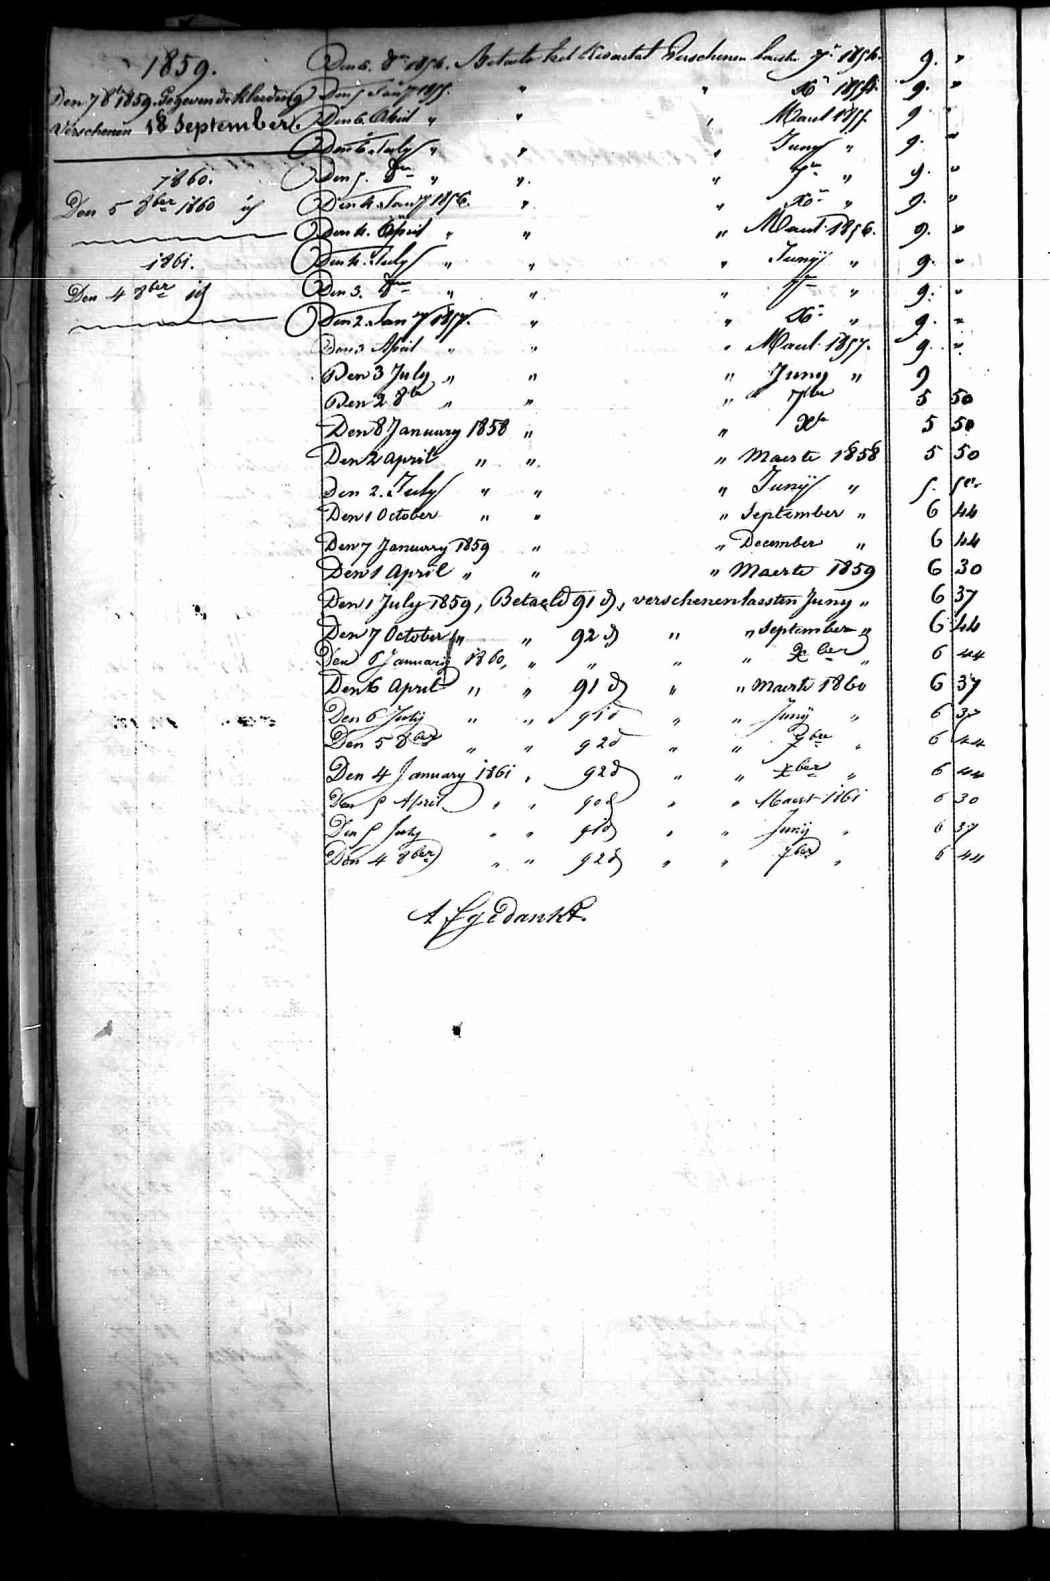 1859.
Den 7 8br 1859. Gegeven de kleeding
Verschenen 18 September.
1860.
Den 5 8ber 1860 id
1861.
Den 4 8ber id
Den 6. 8br 1854. Betaelt het Kwartael Verschenen laeste 7r 1854. 9. "
Den 5 Jany 1855. " " Xr 1854. 9. "
Den 6 April " " " Maert 1855. 9 "
Den 6 July " " " Juny " 9. "
Den 5. 8br " " " 7r " 9. "
Den 4. Jany 1856. " " Xr " 9. "
Den 4. April " " " Maert 1856. 9. "
Den 4. July " " " Junij " 9. "
Den 3. 8br " " " 7r " 9. "
Den 2. Jany 1857. " " Xr " 9. "
Den 3 April " " " Maert 1857. 9 "
Den 3 July " " " Juny " 9
Den 2 8br " " " 7ber 5 50
Den 8 January 1858 " " Xr 5 50
Den 2 April " " " Maerte 1858 5 50
Den 2. July " " " Junij " 5. 50
Den 1 October " " " September " 6 44
Den 7 January 1859 " " December " 6 44
Den 1 April " " " Maerte 1859 6 30
Den 1 July 1859, Betaeld 91 d, verschenen laesten Juny " 6 37
Den 7 October " " 92 d " " September " 6 44
Den 6 January 1860, " " " " Xber " 6 44
Den 6 April " " 91 d " " Maerte 1860 6 37
Den 6 July " " 91 d " " Junij " 6 37
Den 5 8ber " " 92 d " " 7ber " 6 44
Den 4 January 1861 " 92 d " " Xber " 6 44
Den 5 April " " 90 d " " Maert 1861 6 30
Den 5 July " " 91 d " " Junij " 6 37
Den 4 8ber " " 92 d " " 7ber " 6 44
Afgedankt.